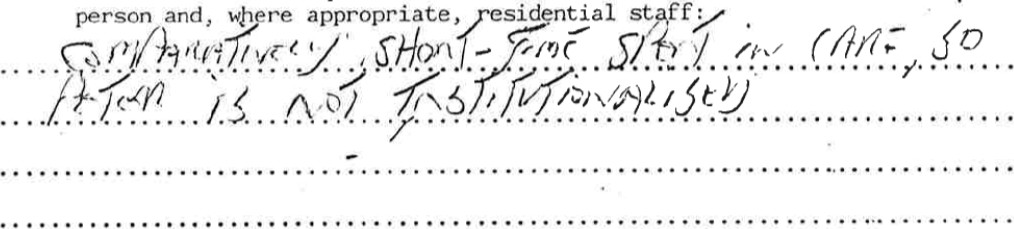 person and, where appropriate, residential staff:
COMPARATIVELY SHORT-TIME SPENT in CARE, SO
PETER iS NOT INSTITUTIONALISED